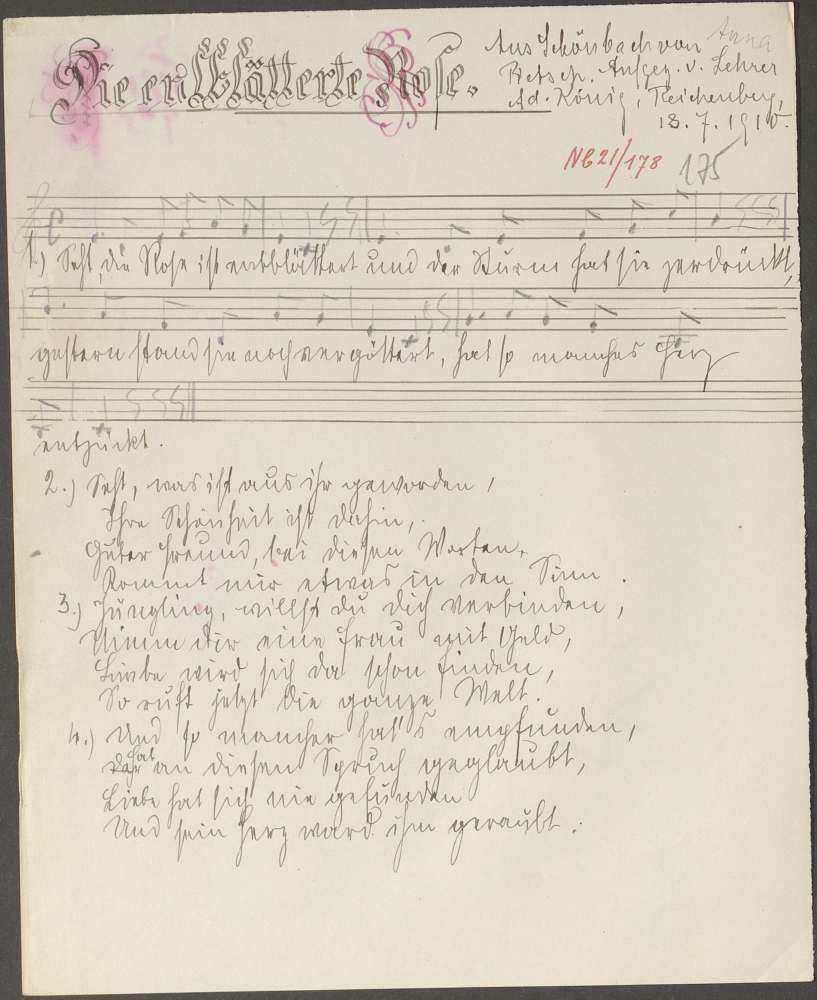 Die entblätterte Rose.
Aus Schönbach von Anna
Retsch. Aufgez. v. Lehrer
Ad. König, Reichenberg,
18.7.1910.
NB21/178 175
1.) Seht, die Rose ist entblättert und der Sturm hat sie zerdrückt,
gestern stand sie noch vergöttert, hat so manches Herz
entzückt.
2.) Seht, was ist aus ihr geworden,
Ihre Schönheit ist dahin,
Guter Freund, bei diesen Worten,
Kommt mir etwas in den Sinn.
3.) Jüngling, willst du dich verbinden,
Nimm dir eine Frau mit Geld,
Liebe wird sich da schon finden,
So ruft jetzt die ganze Welt.
4.) Und so mancher hat's empfunden,
Der hat an diesen Spruch geglaubt,
Liebe hat sich nie gefunden
Und sein Herz ward ihm geraubt.